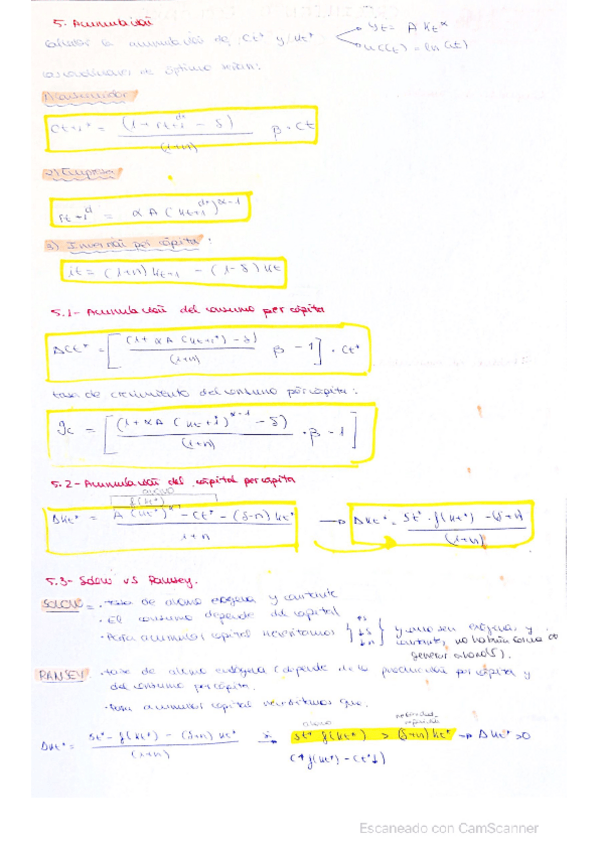 5. Acumulación
Calcular la acumulación de Ct* y Kt* yt = A Kt^α
u(Ct) = ln(Ct)
Las condiciones de óptimo serían:
1) Consumidor
Ct+1* = (1 + rt+1 - δ) / (1+n) β · Ct
2) Empresa
rt+1^d = α A (Kt+1^d)^α-1
3) Inversión per cápita:
it = (1+n) Kt+1 - (1-δ) Kt
5.1- Acumulación del consumo per cápita
ΔCt* = [ (1 + αA (Kt+1*) - δ) / (1+n) β - 1 ] · Ct*
tasa de crecimiento del consumo per cápita:
gc = [ (1 + αA (Kt+1)^α-1 - δ) / (1+n) · β - 1 ]
5.2- Acumulación del capital per cápita
f(Kt*)
ΔKt* = A (Kt*)^α - Ct* - (δ-n) Kt* / 1+n → ΔKt* = St* · f(Kt*) - (δ+n) / (1+n)
5.3- Solow vs Ramsey.
SOLOW = · tasa de ahorro exógena y constante
· El consumo depende del capital
· Para acumular capital necesitamos ↑s ↓δ ↓n } y como son exógenas y
constantes, no habría forma de
generar ahorro(s).
RAMSEY · tasa de ahorro endógena (depende de la producción per cápita y
del consumo per cápita.
· Para acumular capital necesitamos que.
ahorro
ΔKt* = St* - f(Kt*) - (δ+n) Kt* / (1+n) St* f(Kt*) > (δ+n) Kt* → ΔKt* > 0
(↑f(Kt*) - Ct*↓)
Escaneado con CamScanner